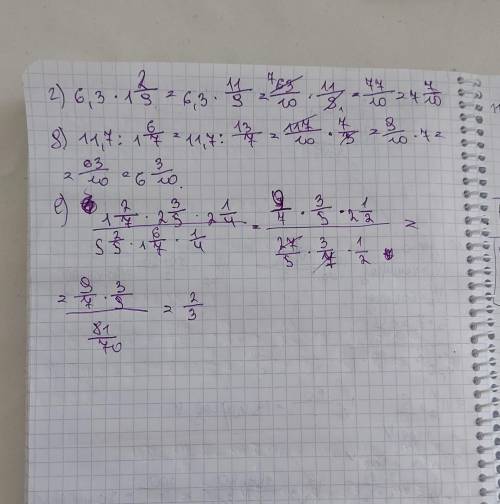 2) 6,3 · 1 2/9 = 6,3 · 11/9 = 63/10 · 11/9 = 77/10 = 7 7/10
8) 11,7 : 1 6/7 = 11,7 : 13/7 = 117/10 · 7/13 = 9/10 · 7 =
= 63/10 = 6 3/10.
e) (1 2/7 · 2 3/5 · 2 1/4)/(5 2/5 · 1 6/7 · 1/4) = (9/7 · 3/5 · 2 1/2)/(27/5 · 3/7 · 1/2) =
= (9/7 · 3/9)/(81/70) = 2/3